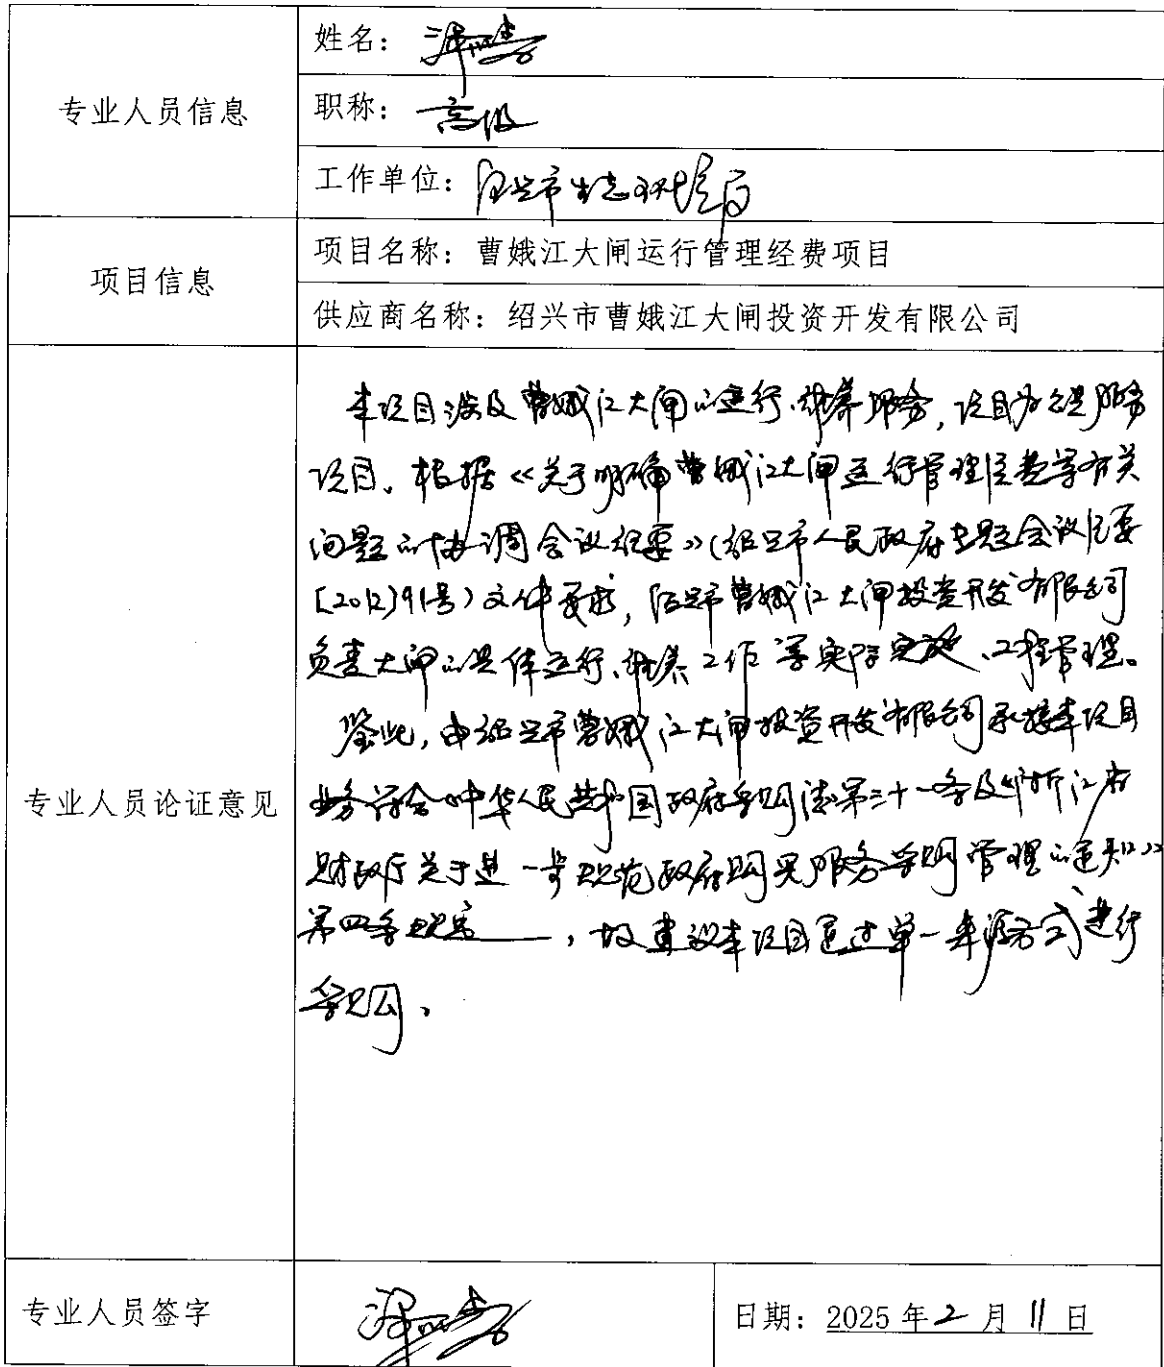 专业人员信息
姓名：
职称：高级
工作单位：绍兴市生态环境局
项目信息
项目名称：曹娥江大闸运行管理经费项目
供应商名称：绍兴市曹娥江大闸投资开发有限公司
专业人员论证意见
本项目涉及曹娥江大闸的运行、维养服务，项目为公共服务
项目。根据《关于明确曹娥江大闸运行管理经费等有关
问题的协调会议纪要》（绍兴市人民政府专题会议纪要
[2012]91号）文件要求，绍兴市曹娥江大闸投资开发有限公司
负责大闸的具体运行、维养工作等实际实施、工程管理。
鉴此，由绍兴市曹娥江大闸投资开发有限公司承接本项目
业务符合《中华人民共和国政府采购法》第三十一条及《浙江省
财政厅关于进一步规范政府购买服务采购管理的通知》
第四条规定，故建议本项目通过单一来源方式进行
采购。
专业人员签字
日期：2025年2月11日